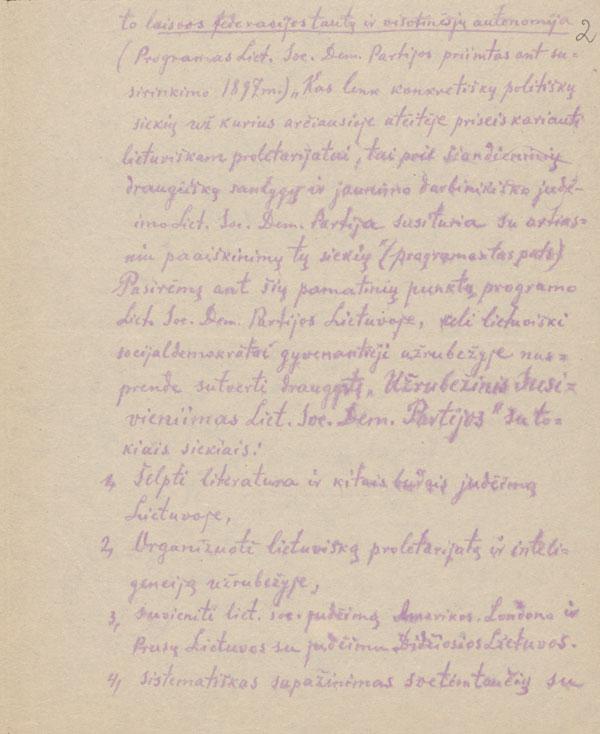 2
to laisvos federacijos tautų ir visotinėsją autonomija
(Programas Liet. Soc. Dem. Partijos priimtas ant su-
sirinkimo 1897 m.) „Kas link konkretiškų politiškų
siekių už kurius arčiausioje ateitėje priseis kariauti
lietuviškam proletarijatui, tai prie šiandieninių
draugiškų santygų ir jaunimo darbinikiško judė-
imo Liet. Soc. Dem. Partija susituria su
paaiškinimų tų siekių" (programas tas pats)
Pasirėmę ant šių pamatinių punktų programo
Liet. Soc. Dem. Partijos Lietuvoje, keli lietuviški
socijaldemokratai gyvenantieji užrubežyje nus-
prendė sutverti draugystę „Užrubežinis Susi-
vienijimas Liet. Soc. Dem. Partijos" su to-
kiais siekiais:
1, Šelpti literatura ir kitais budais judėjimą
Lietuvoje,
2, Organizuoti lietuvišką proletarijatą ir inteli-
genciją užrubežyje,
3, suvieniti liet. soc. judėimą Amerikos, Londono ir
Prusų Lietuvos su judėimu Didžiosios Lietuvos.
4, sistematiškas supažinimas svetimtaučių su